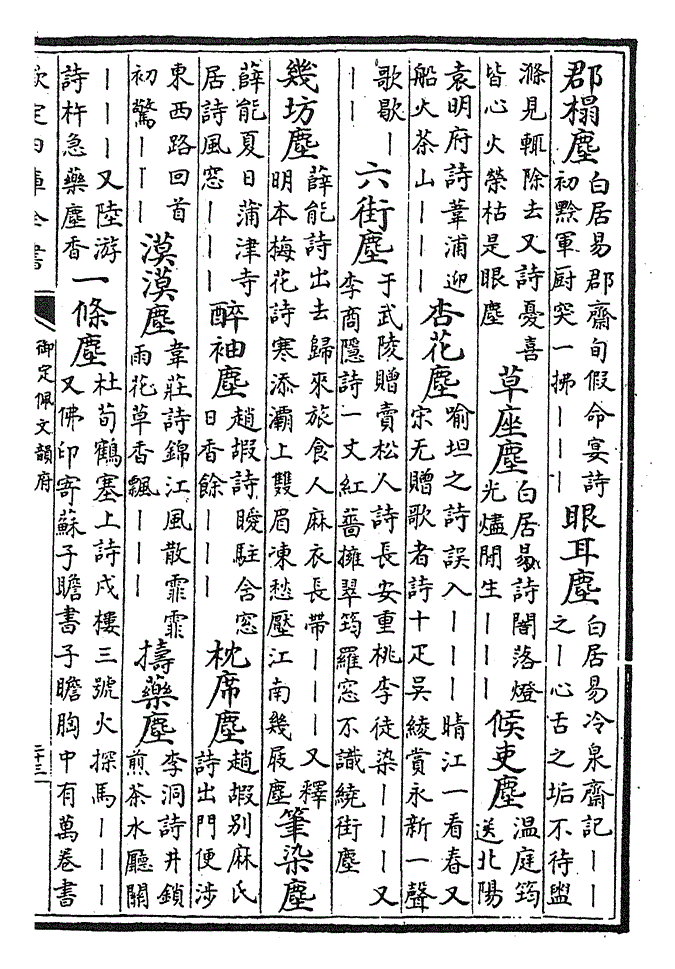 郡榻塵
白居易郡齋旬假命宴詩
初黲軍厨突一拂｜｜｜
眼耳塵
白居易冷泉齋記｜｜
之｜心舌之垢不待盥
滌見輒除去又詩憂喜
皆心火榮枯是眼塵
草座塵
白居易詩闇落燈
光燼閒生｜｜｜
候吏塵
温庭筠
送北陽
袁明府詩葦浦迎
船火茶山｜｜｜
杏花塵
喻坦之詩誤入｜｜｜晴江一看春又
宋无贈歌者詩十疋吳綾賞永新一聲
歌歇｜
｜｜
六街塵
于武陵贈賣松人詩長安重桃李徒染｜｜｜又
李商隱詩一丈紅薔擁翠筠羅窓不識繞街塵
幾坊塵
薛能詩出去歸來旅食人麻衣長帶｜｜｜又釋
明本梅花詩寒添灞上雙眉凍愁壓江南幾屐塵
筆染塵
薛能夏日蒲津寺
居詩風窓｜｜｜
醉袖塵
趙嘏詩曖駐含窓
日香餘｜｜｜
枕席塵
趙嘏別麻氏
詩出門便涉
東西路回首
初驚｜｜｜
漠漠塵
韋莊詩錦江風散霏霏
雨花草香飄｜｜｜
擣藥塵
李洞詩井鎖
煎茶水廳關
｜｜｜又陸游
詩杵急藥塵香
一條塵
杜荀鶴塞上詩戍樓三號火探馬｜｜｜
又佛印寄蘇子瞻書子瞻胸中有萬卷書
欽定四庫全書
御定佩文韻府
二十三